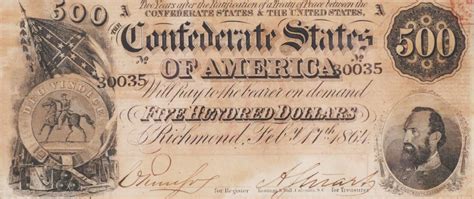 Two Years after the Ratification of a Treaty of Peace between the
500 A CONFEDERATE STATES & THE UNITED STATES, A
THE Confederate States 500
No 30035 OF AMERICA No 30035
Will pay to the bearer on demand
DEO VINDICE
FIVE HUNDRED DOLLARS
Richmond, Feby. 17th 1864
for Register for Treasurer